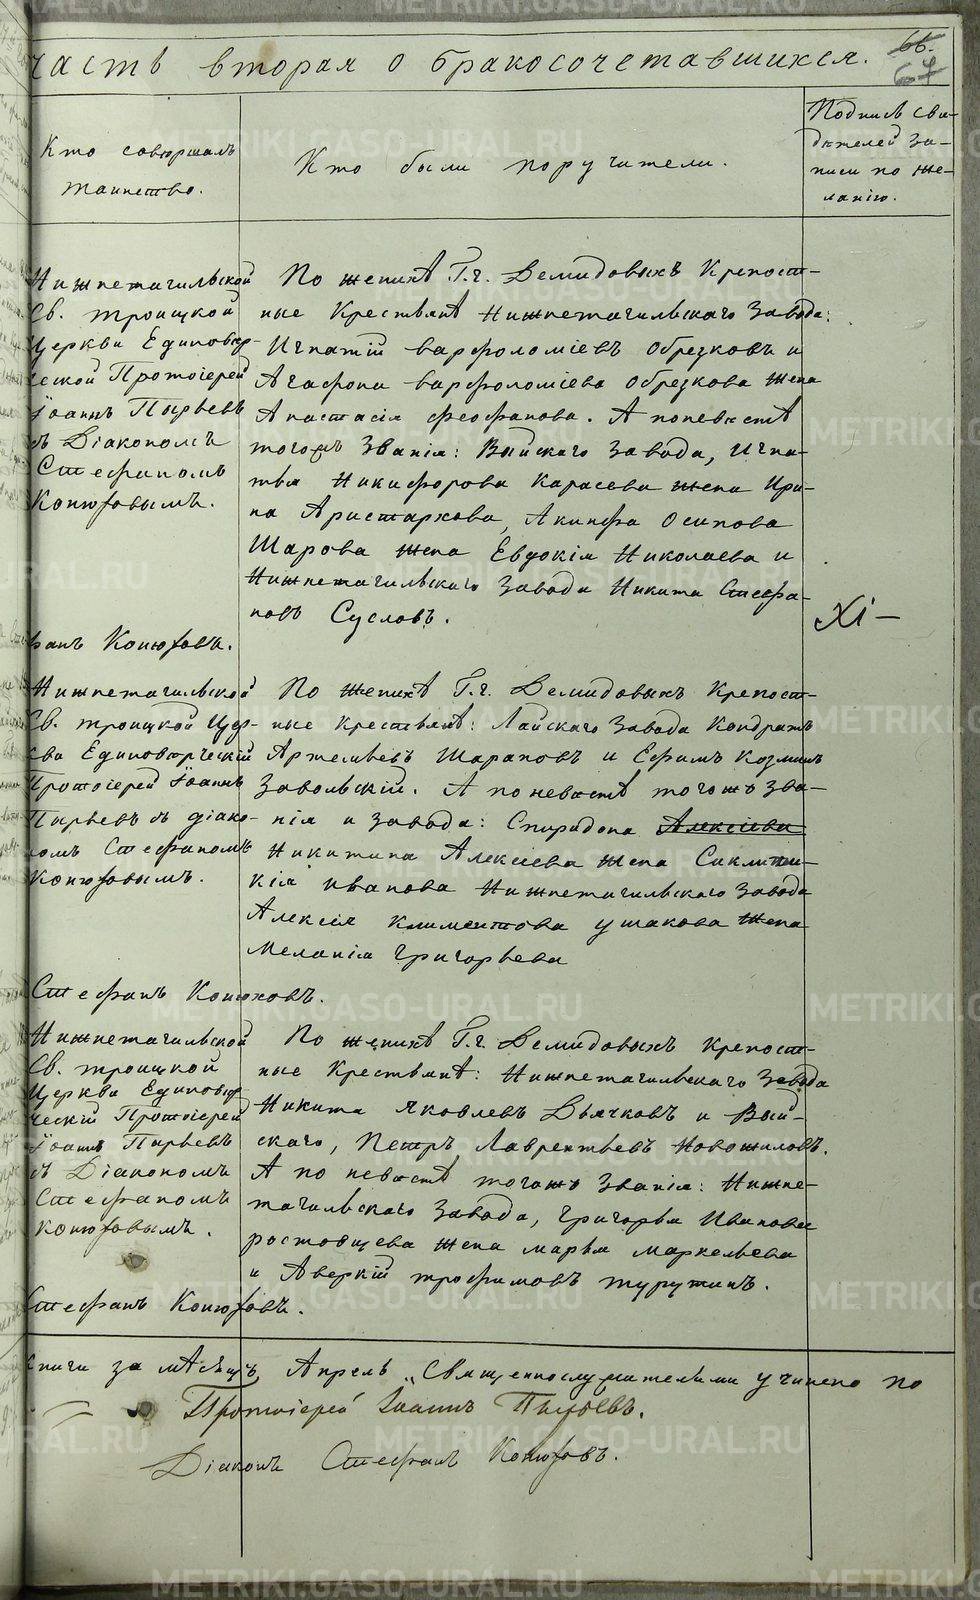 часть вторая о бракосочетавшихся.
66.
67
Кто совершалъ
таинство.
Кто были поручители.
Подпись сви-
дѣтелей за-
писи по же-
ланію.
Нижнетагильской
Св. Троицкой
Церкви Единовѣр-
ческой Протоіерей
Іоаннъ Пырьевъ
съ Діакономъ
Стефаномъ
Конюховымъ.
По женихѣ Г.г. Демидовыхъ Крепост-
ные Крестьянѣ Нижнетагильскаго Завода:
Игнатій варфоломіевъ Обрезковъ и
Агафона варфоломіева Обрезкова жена
Анастасія феофанова. А поневѣстѣ
тогожъ Званія: Выйскаго завода, Игна-
тья Никифорова Карасева жена Ири-
на Аристархова, Акинфа Осипова
Шарова жена Евдокія Николаева и
Нижнетагильскаго Завода Никита Стефа-
новъ Сусловъ.
XI –
фанъ Конюховъ.
Нижнетагильской
Св. Троицкой Цер-
кви Единовѣрческій
Протоіерей Іоаннъ
Пырьевъ съ діако-
номъ Стефаномъ
Конюховымъ.
По женихѣ Г.г. Демидовыхъ Крепост-
ные крестьянѣ: Лайскаго Завода Кондратъ
Артемьевъ Шараповъ и Ефимъ Козминъ
Завольскій. А поневѣстѣ тогожъ зва-
нія и завода: Спиридона Алексіева
Никитина Алексіева жена Сиклити-
кія иванова Нижнетагильскаго Завода
Алексія Климентова ушакова жена
Меланія Григорьева
Стефанъ Конюховъ.
Нижнетагильской
Св. Троицкой
Церкви Единовѣр-
ческій Протоіерей
Іоаннъ Пырьевъ
съ Діакономъ
Стефаномъ
Конюховымъ.
По женихѣ Г.г. Демидовыхъ крепост-
ные Крестьянѣ: Нижнетагильскаго Завода
Никита Яковлевъ Дьячковъ и Вый-
скаго, Петръ Лаврентьевъ Новожиловъ.
А по невѣстѣ тогожъ званія: Нижне-
тагильскаго Завода, Григорья Иванова
ростовщева жена марья маркельева
и Аверкій трофимовъ турутинъ.
Стефанъ Конюховъ.
книги за мѣсяцъ Апрель Священнослужителями учинено по
Протоіерей Іоаннъ Пырьевъ.
Діаконъ Стефанъ Конюховъ.
METRIKI.GASO-URAL.RU